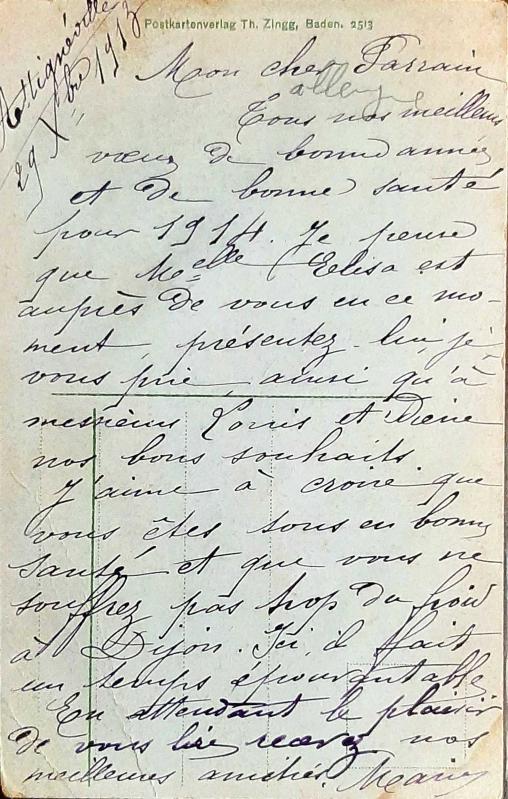 Attignéville
29 Xbre 1913
Postkartenverlag Th. Zingg, Baden. 2513
Mon cher Parrain
Tous nos meilleurs
vœux de bonne année
et de bonne santé
pour 1914. Je pense
que Melle Elisa est
auprès de vous en ce mo-
ment, présentez-lui, je
vous prie, ainsi qu'à
messieurs Louis et
nos bons souhaits.
J'aime à croire que
vous êtes tous en bonne
santé et que vous ne
souffrez pas trop du froid
à Dijon. Ici, il fait
un temps épouvantable
En attendant le plaisir
de vous lire recevez nos
meilleures amitiés.